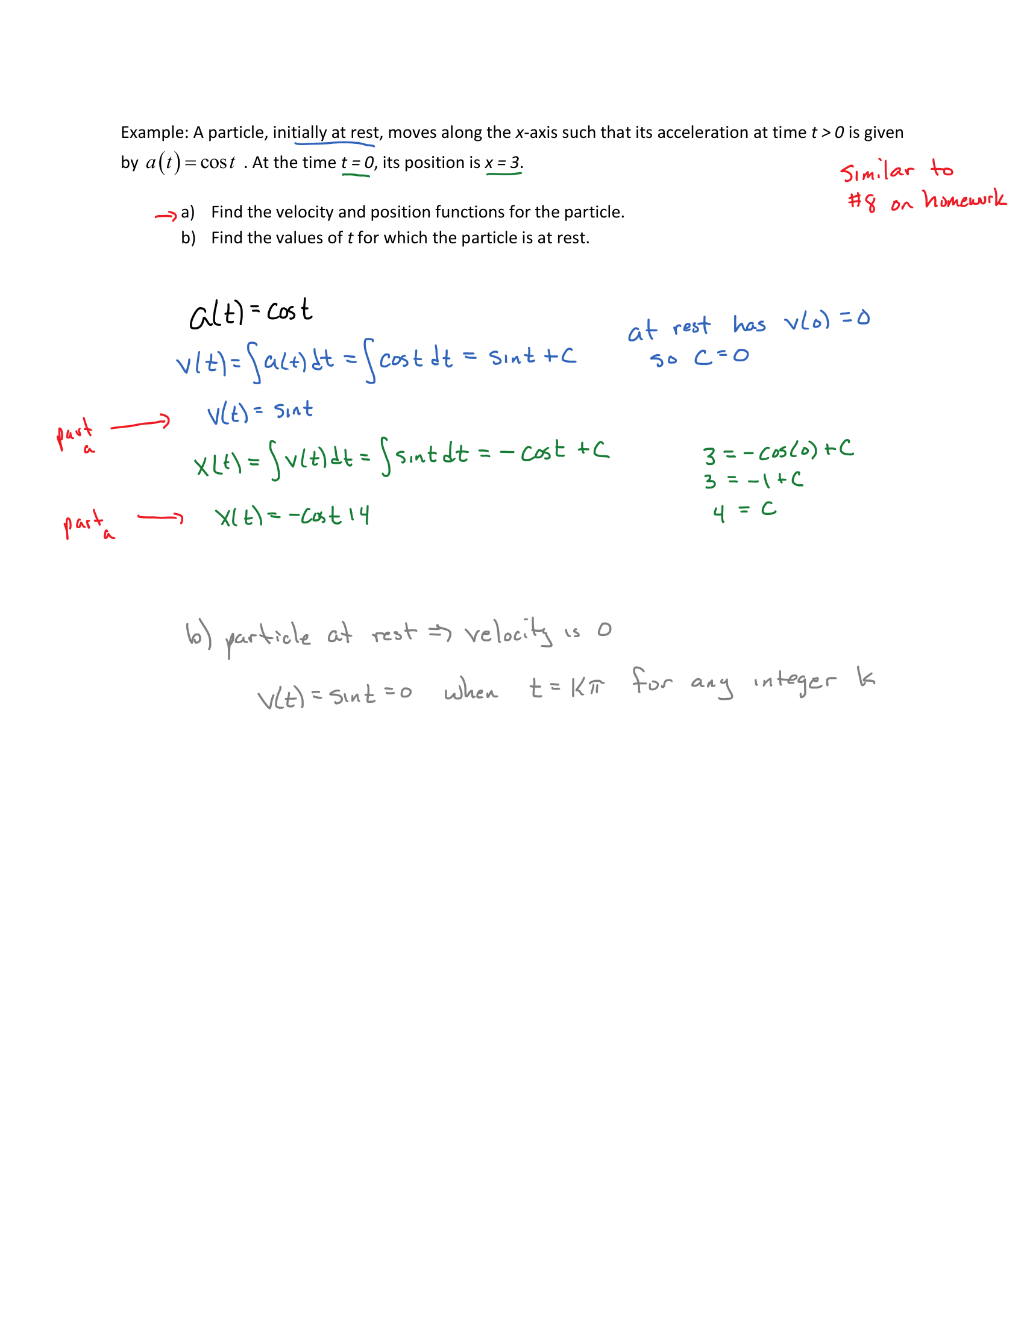 Example: A particle, initially at rest, moves along the x-axis such that its acceleration at time t > 0 is given
by a(t) = cos t . At the time t = 0, its position is x = 3.
Similar to
#8 on homework
→ a) Find the velocity and position functions for the particle.
b) Find the values of t for which the particle is at rest.
a(t) = cos t
at rest has v(0) = 0
so C = 0
v(t) = ∫a(t) dt = ∫cos t dt = sin t + C
v(t) = sin t
part a →
x(t) = ∫v(t) dt = ∫sin t dt = - cos t + C
3 = - cos(0) + C
3 = -1 + C
4 = C
part a → x(t) = -cos t + 4
b) particle at rest ⇒ velocity is 0
v(t) = sin t = 0 when t = kπ for any integer k